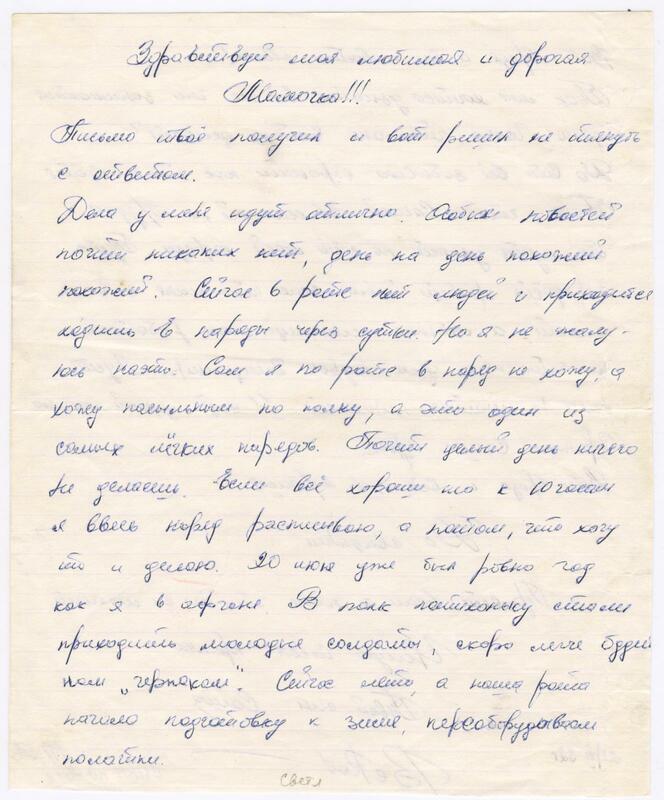 Здравствуй моя любимая и дорогая
Мамочка!!!
Письмо твоё получил и вот решил не тянуть
с ответом.
Дела у меня идут отлично. Особых новостей
почти никаких нет, день на день похожий
похожий. Сейчас в роте нет людей и приходится
ходить в наряды через сутки. Но я не жалу-
юсь на это. Сам я по роте в наряд не хожу, а
хожу посыльным по полку, а это один из
самых лёгких нарядов. Почти целый день ничего
не делаешь. Если всё хорошо то к 10 часам
я ввесь наряд расписываю, а потом, что хочу
то и делаю. 20 июня уже был ровно год
как я в афгане. В полк потихоньку стали
приходить молодые солдаты, скоро легче будет
нам „черпакам". Сейчас лето, а наша рота
начала подготовку к зиме, переоборудываем
палатки.
Светл